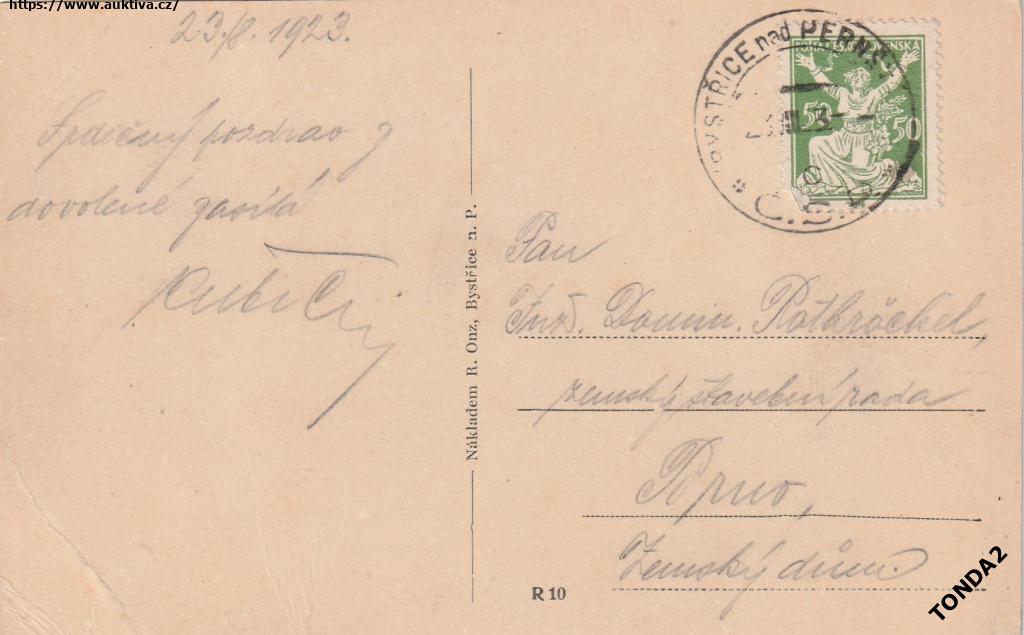 https://www.auktiva.cz/
23./8. 1923.
Srdečný pozdrav z
dovolené zasílá
Nákladem R. Onz, Bystřice n. P.
BYSTŘICE nad PERNŠ.
POŠTA ČESKOSLOVENSKÁ
50 50
Č.S.
Pan
Inž. Domin. Rothröckel,
zemský stavební rada
Brno,
Zemský dům
R 10
TONDA2